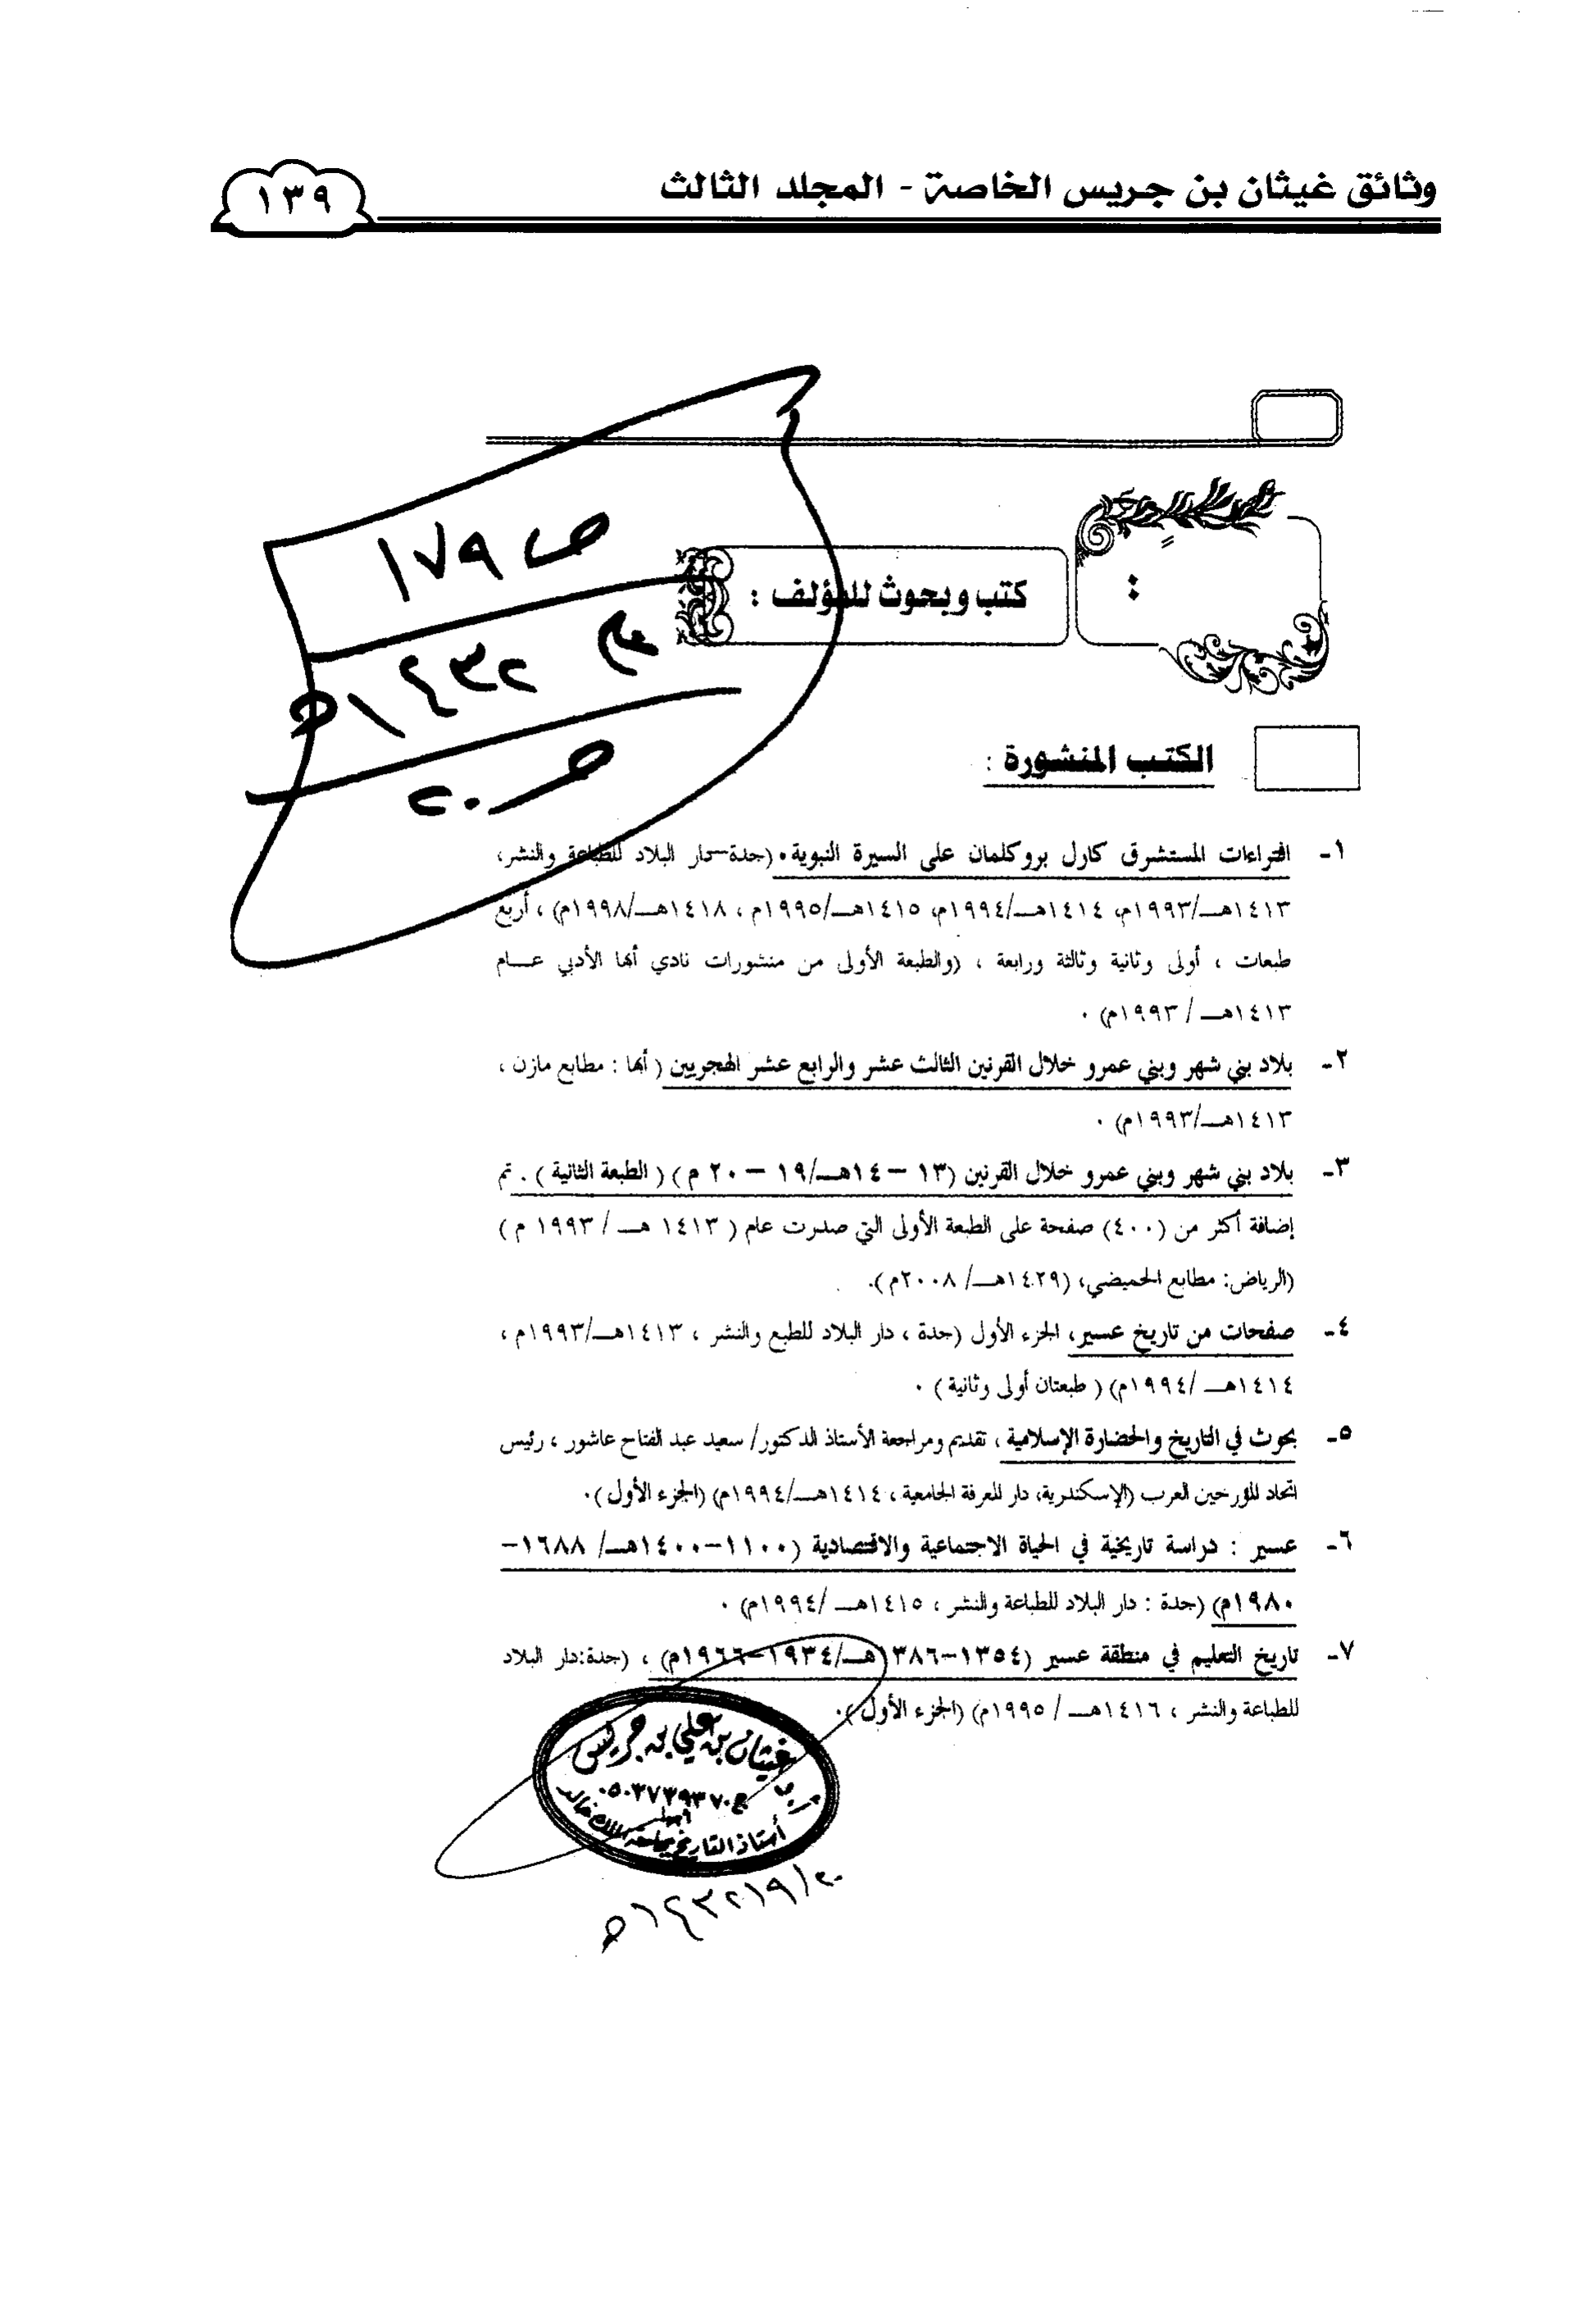 وثائق غيثان بن جريس الخاصة - المجلد الثالث
١٣٩
ص ١٧٩
١٤٣٢هـ
كتب وبحوث للمؤلف :
الكتب المنشورة :
١- افتراءات المستشرق كارل بروكلمان على السيرة النبوية. (جدة-دار البلاد للطباعة والنشر،
١٤١٣هـ/١٩٩٣م، ١٤١٤هـ/١٩٩٤م، ١٤١٥هـ/١٩٩٥م ، ١٤١٨هـ/١٩٩٨م) ، أربع
طبعات ، أولى وثانية وثالثة ورابعة ، (والطبعة الأولى من منشورات نادي أبها الأدبي عـام
١٤١٣هـ / ١٩٩٣م) .
٢- بلاد بني شهر وبني عمرو خلال القرنين الثالث عشر والرابع عشر الهجريين ( أبها : مطابع مازن ،
١٤١٣هـ/١٩٩٣م) .
٣- بلاد بني شهر وبني عمرو خلال القرنين (١٣ – ١٤هـ/١٩ – ٢٠ م ) ( الطبعة الثانية ) . تم
إضافة أكثر من (٤٠٠) صفحة على الطبعة الأولى التي صدرت عام ( ١٤١٣ هـ / ١٩٩٣ م )
(الرياض: مطابع الحميضي، (١٤٢٩هـ/ ٢٠٠٨م ).
٤- صفحات من تاريخ عسير، الجزء الأول (جدة ، دار البلاد للطبع والنشر ، ١٤١٣هـ/١٩٩٣م ،
١٤١٤هـ /١٩٩٤م) ( طبعتان أولى وثانية ) .
٥- بحوث في التاريخ والحضارة الإسلامية ، تقديم ومراجعة الأستاذ الدكتور/ سعيد عبد الفتاح عاشور ، رئيس
اتحاد المؤرخين العرب (الإسكندرية، دار المعرفة الجامعية ، ١٤١٤هـ/١٩٩٤م) (الجزء الأول ).
٦- عسير : دراسة تاريخية في الحياة الاجتماعية والاقتصادية (١١٠٠-١٤٠٠هـ/ ١٦٨٨-
١٩٨٠م) (جدة : دار البلاد للطباعة والنشر ، ١٤١٥هـ /١٩٩٤م) .
٧- تاريخ التعليم في منطقة عسير (١٣٥٤-١٣٨٦هـ/١٩٣٤-١٩٦٦م) ، (جدة:دار البلاد
للطباعة والنشر ، ١٤١٦هـ / ١٩٩٥م) (الجزء الأول ).
غيثان بن علي بن جريس
ج ٠٥٠٣٧٣٩٣٧٠
أبها
أستاذ التاريخ بجامعة الملك خالد
٢٠/٩/١٤٣٢هـ